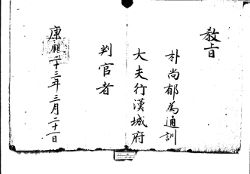 敎旨
朴尚郁爲通訓
大夫行漢城府
判官者
康熙二十三年三月二十一日